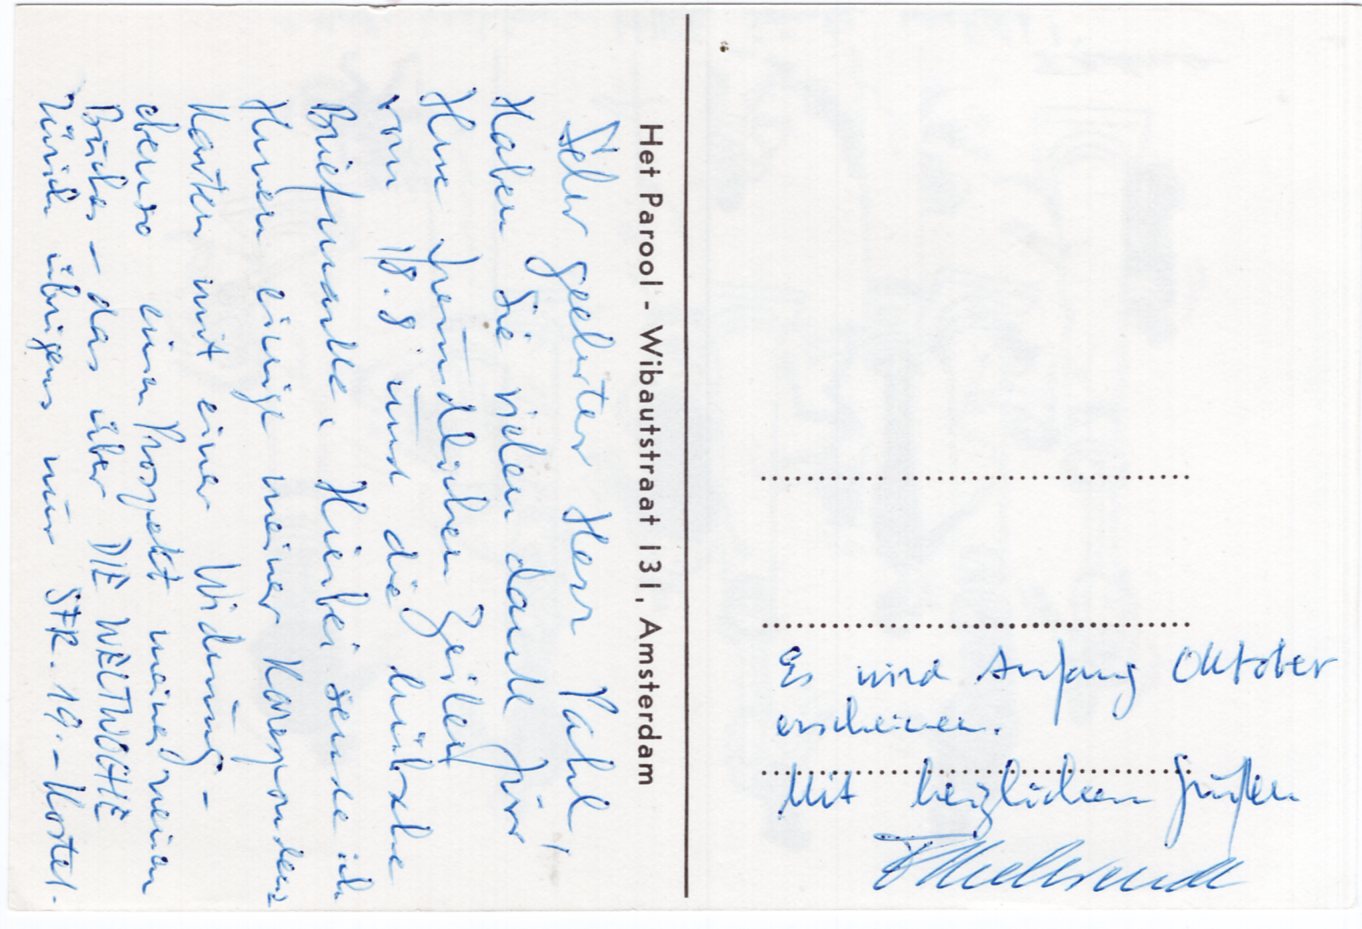 Het Parool - Wibautstraat 131, Amsterdam
Sehr geehrter Herr Pahl,
Haben Sie vielen dank für
Ihre freundlichen Zeilen
vom 18.8 und die hübsche
Briefmarke. Hierbei sende ich
Ihnen einige meiner Korespondenz
Karten mit einer Widmung -
ebenso einen Prospekt meines neuen
Buches - das über DIE WELTWOCHE
Zürich übrigens nur SFR. 19.- Kostet.
Es wird Anfang Oktober
erscheinen.
Mit herzlichen Grüßen